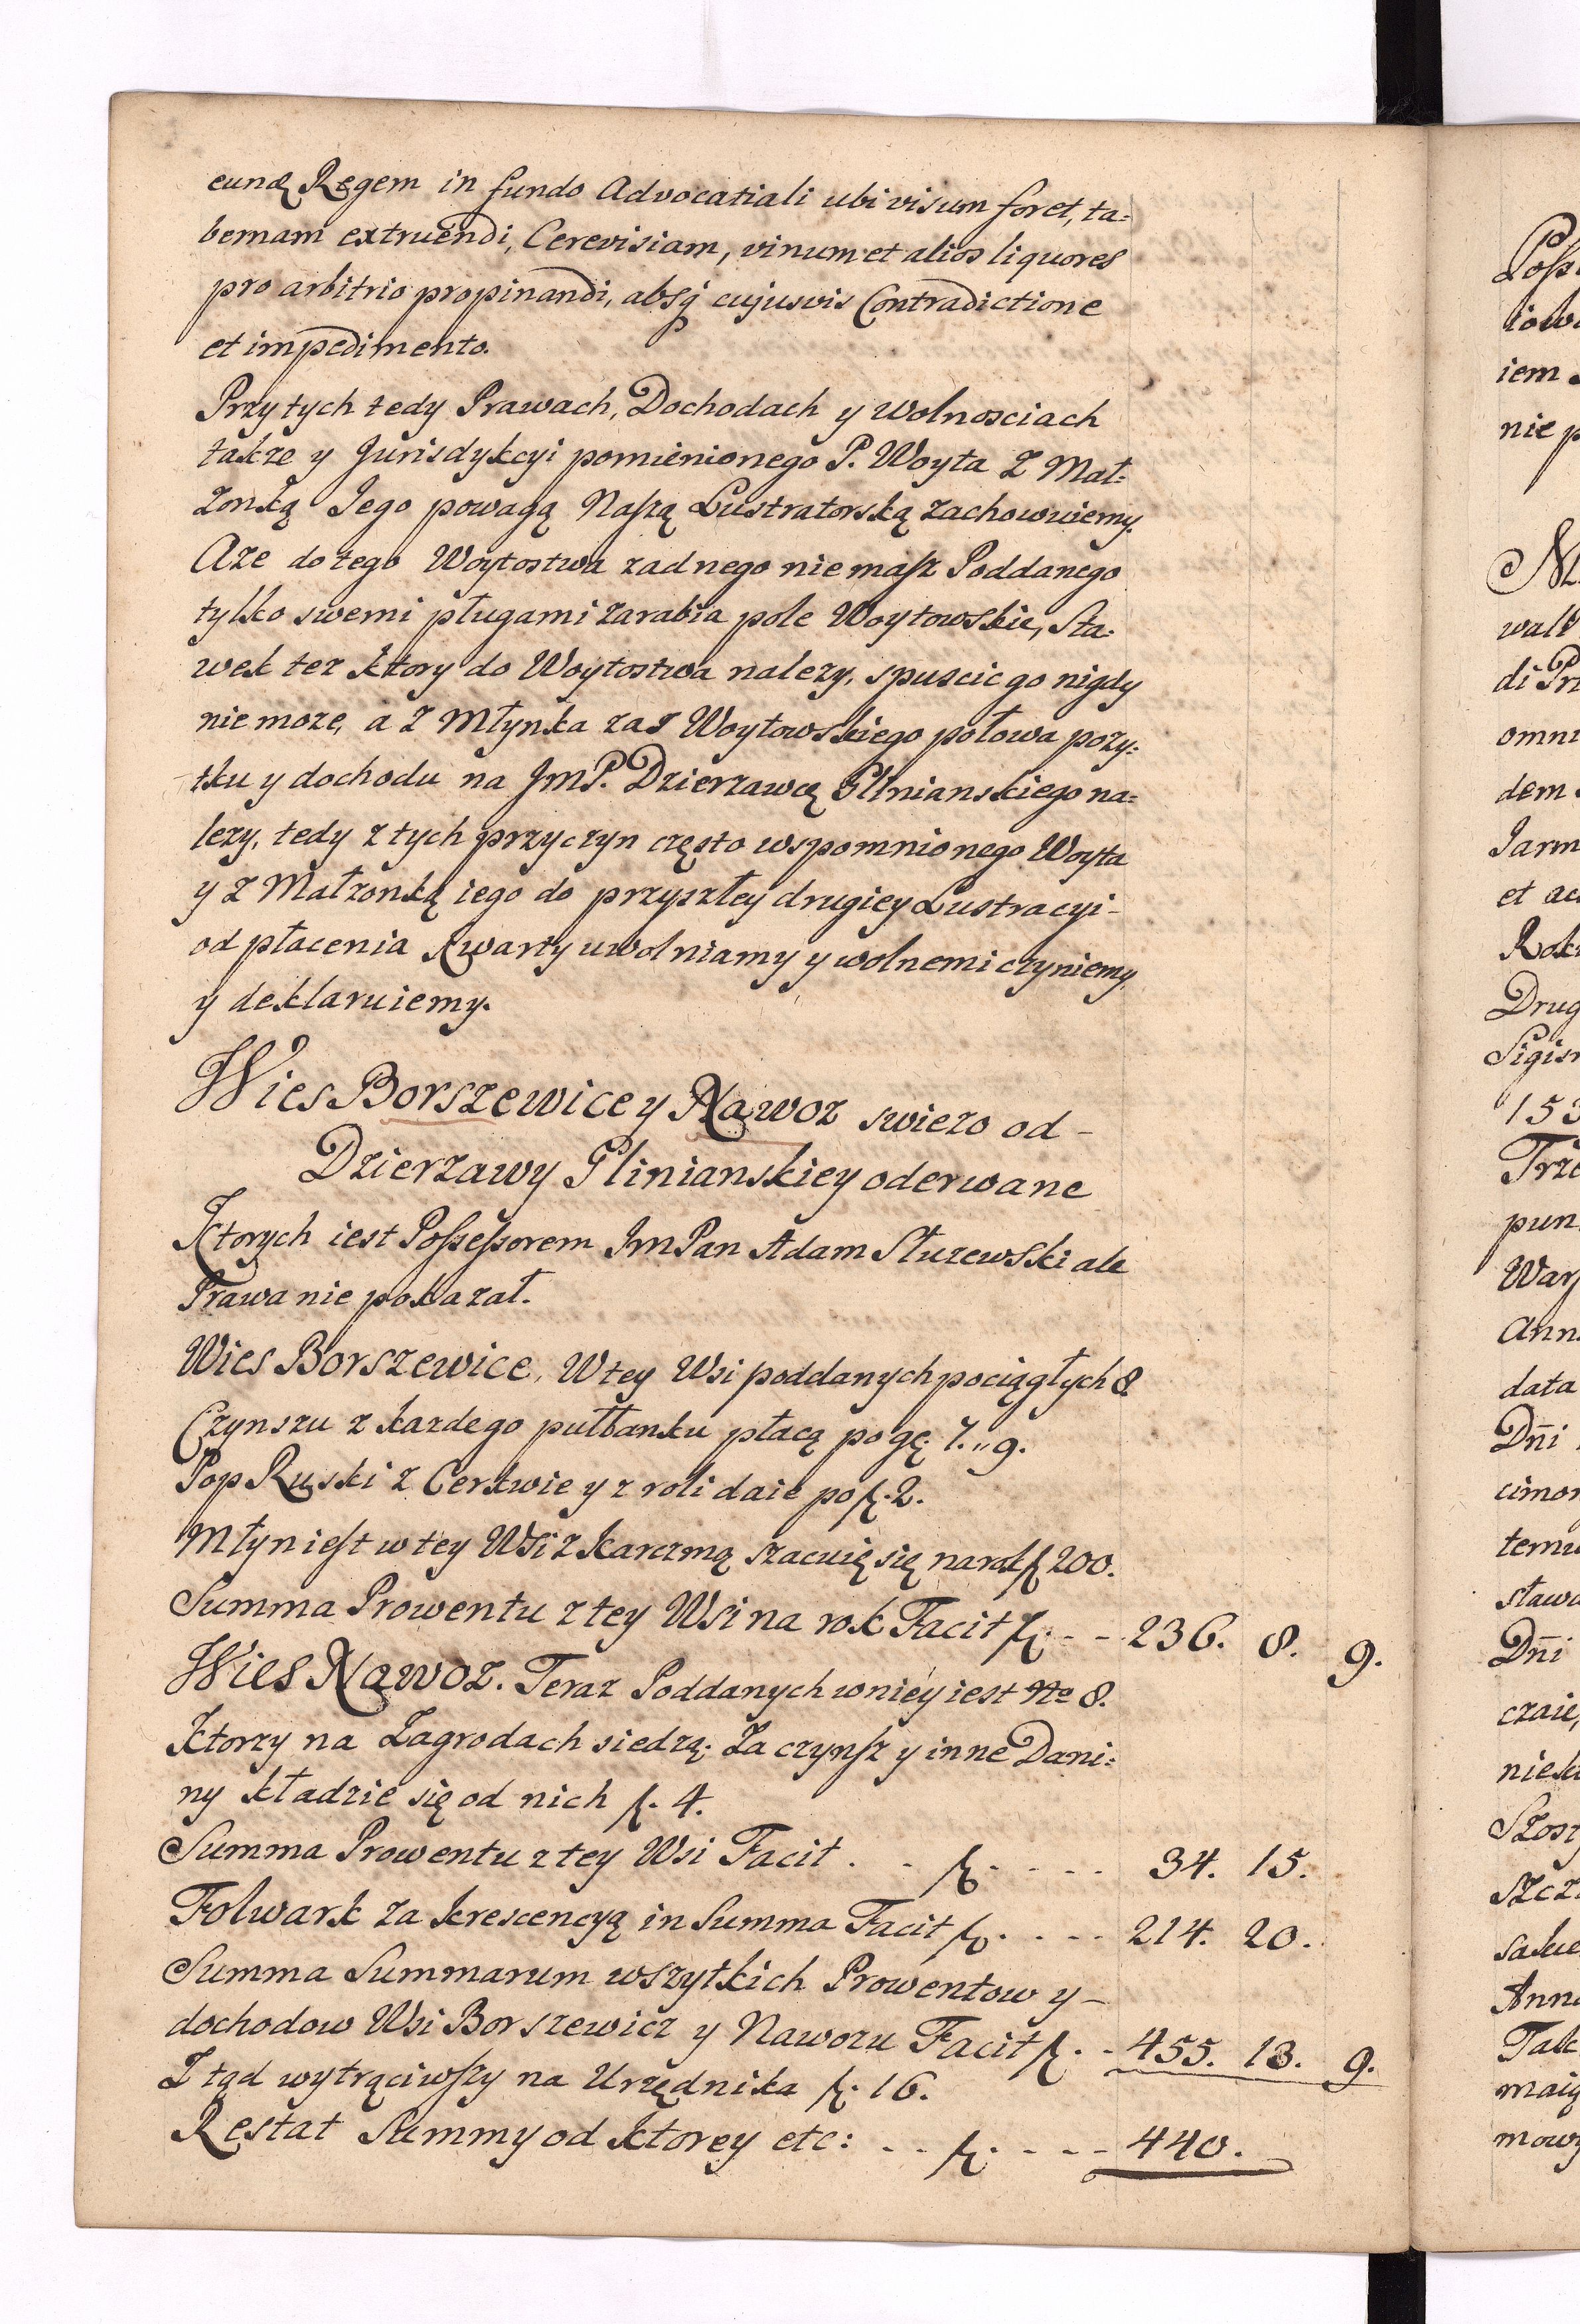 eunq Regem in fundo Advocatiali ubi visum foret, ta=
bernam extruendi, Cerevisiam, vinum et alios liquores
pro arbitrio propinandi, absq cujusvis Contradictione
et impedimento.
Przy tych tedy Prawach, Dochodach y wolnosciach
takze y Jurisdykcyi pomienionego P. Woyta z Mał=
zonką Jego powagą Naszą Lustratorską zachowuiemy.
Aze do tego Woytostwa zadnego niemasz Poddanego
tylko swemi pługami zarabia pole Woytowskie, Sta=
wek tez ktory do Woytostwa nalezy, spuscic go nigdy
nie moze, a z Młynka zas Woytowskiego połowa pozy=
tku y dochodu na JmP. Dzierzawcę Glinianskiego na=
lezy, tedy z tych przyczyn często wspomnionego Woyta
y z Małzonką iego do przyszłey drugiey Lustracyi-
od płacenia Kwarty uwolniamy y wolnemi czyniemy
y deklaruiemy.
Wies Borszewice y Nawoz swiezo od-
Dzierzawy Glinianskiey oderwane
Ktorych iest Possessorem JmPan Adam Słuzewski ale
Prawa nie pokazał.
Wies Borszewice. W tey Wsi poddanych pociągłych 8.
Czynszu z kazdego pułłanku płacą po gę. 7.„9.
Pop Ruski z Cerkwie y z roli daie po f. 2.
Młyn iest w tey Wsi z karczmą szacuię się na rok f 200.
Summa Prowentu z tey Wsi na rok Facit f. - - 236. 8. 9.
Wies Nawoz. Teraz Poddanych w niey iest No 8.
Ktorzy na Zagrodach siedzą. Za czynsz y inne Dani=
ny kładzie się od nich f. 4.
Summa Prowentu z tey Wsi Facit . . f. - - - - 34. 15.
Folwark za krescencyą in Summa Facit f. . - - - 214. 20.
Summa Summarum wszytkich Prowentow y-
dochodow Wsi Borszewicz y Nawozu Facit f. - 455. 13. 9.
Z tąd wytrąciwszy na Urzędnika f. 16.
Restat Summy od ktorey etc: - - f. - - - 440.